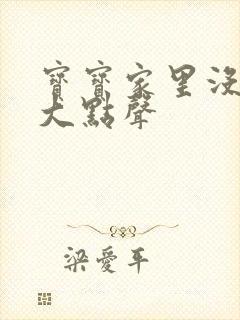 寶寶家里沒
大點聲
梁愛平